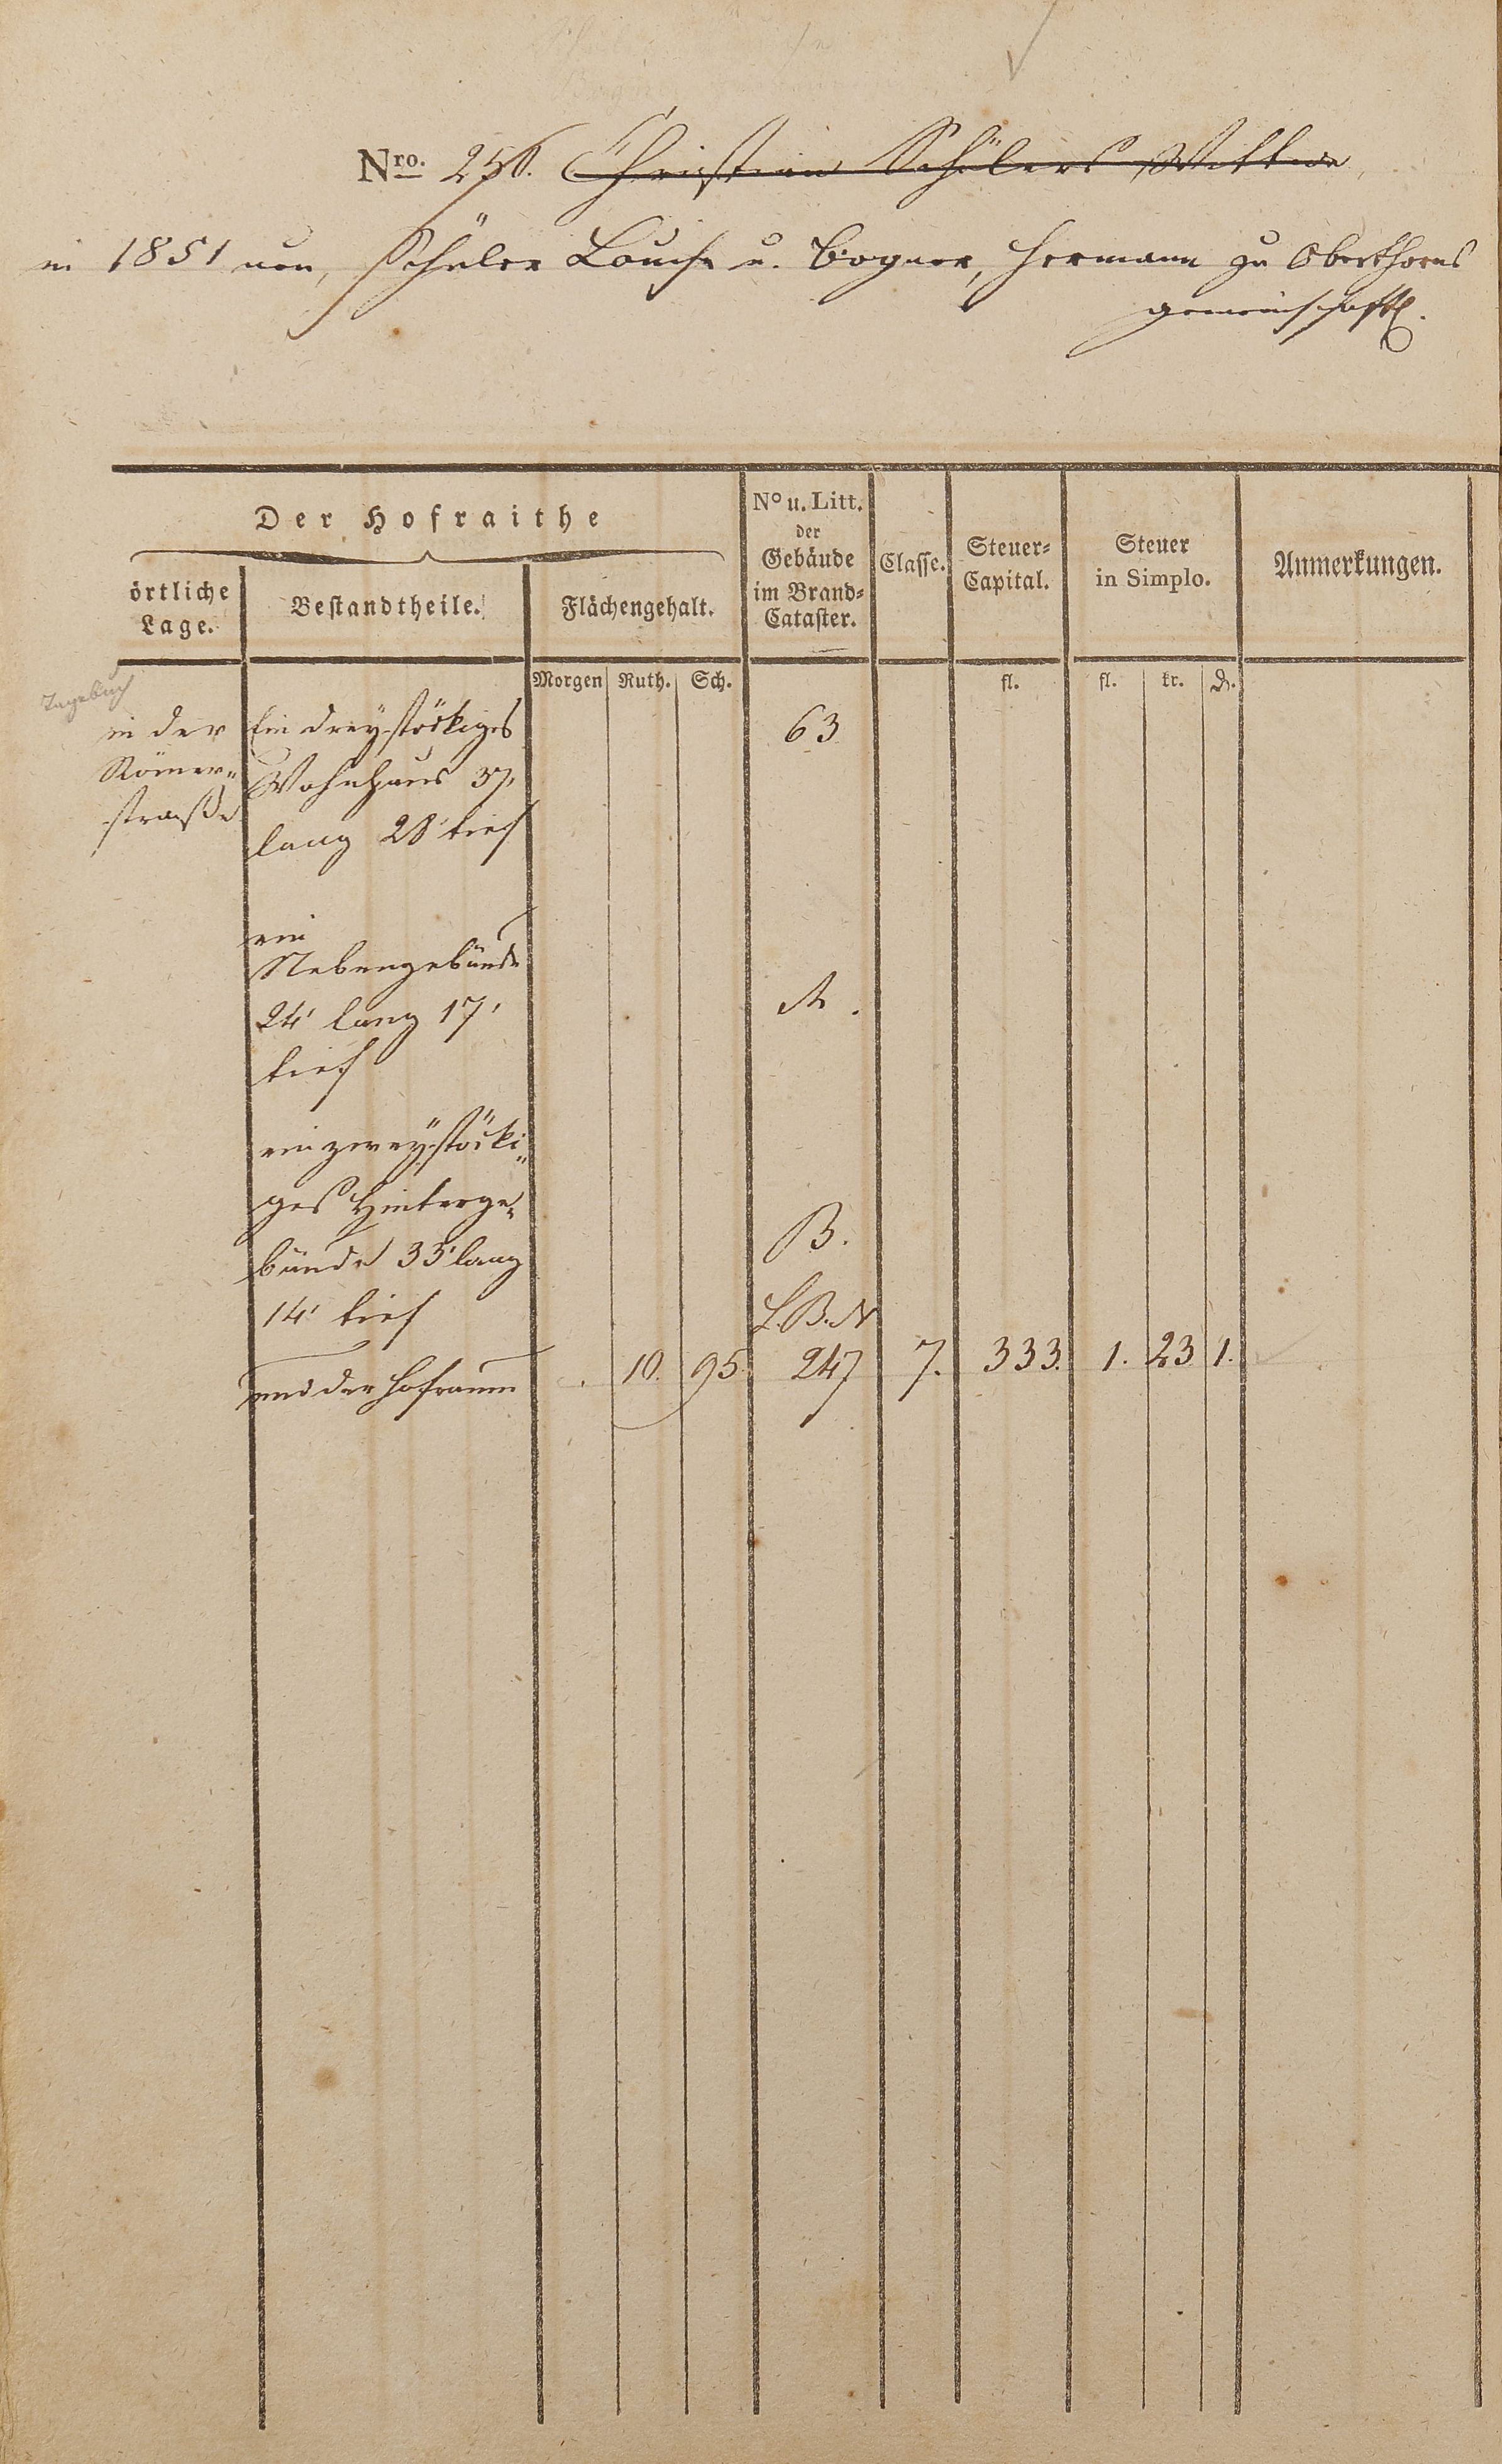 Nro. 256. Christian Schülers Wittwe
in 1851 von, Schüler Louise u. Bogner, Hermann zu
gemeinschaftl.
Der Hofraithe
örtliche Lage.
Bestandtheile.
Flächengehalt.
No u. Litt. der Gebäude im Brand-Cataster.
Classe.
Steuer-Capital.
Steuer in Simplo.
Anmerkungen.
Morgen Ruth. Sch. fl. fl. kr. d.
Tagebuch
in der Ein dreystöckiges 63
Römer- Wohnhaus 37'
straße lang 28' tief
ein
Nebengebäude
24' lang 17' A.
tief
ein zweystöcki-
ges Hinterge- B.
bäude 35' lang
14' tief L.B.N
und der Hofraum . 10. 95. 247 7. 333. 1. 23 1.